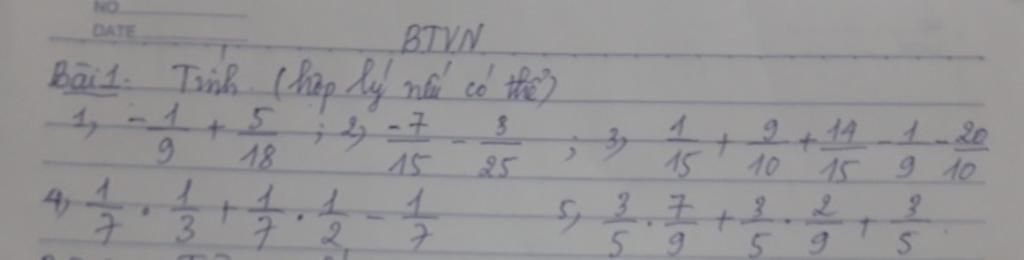 NO
DATE
BTVN
Bài 1: Tính (hợp lý nếu có thể)
1, -1/9 + 5/18 ; 2, -7/15 - 3/25 ; 3, 1/15 + 9/10 + 14/15 - 1/9 - 20/10
4, 1/7 . 1/3 + 1/7 . 1/2 - 1/7 5, 3/5 . 7/9 + 3/5 . 2/9 + 3/5